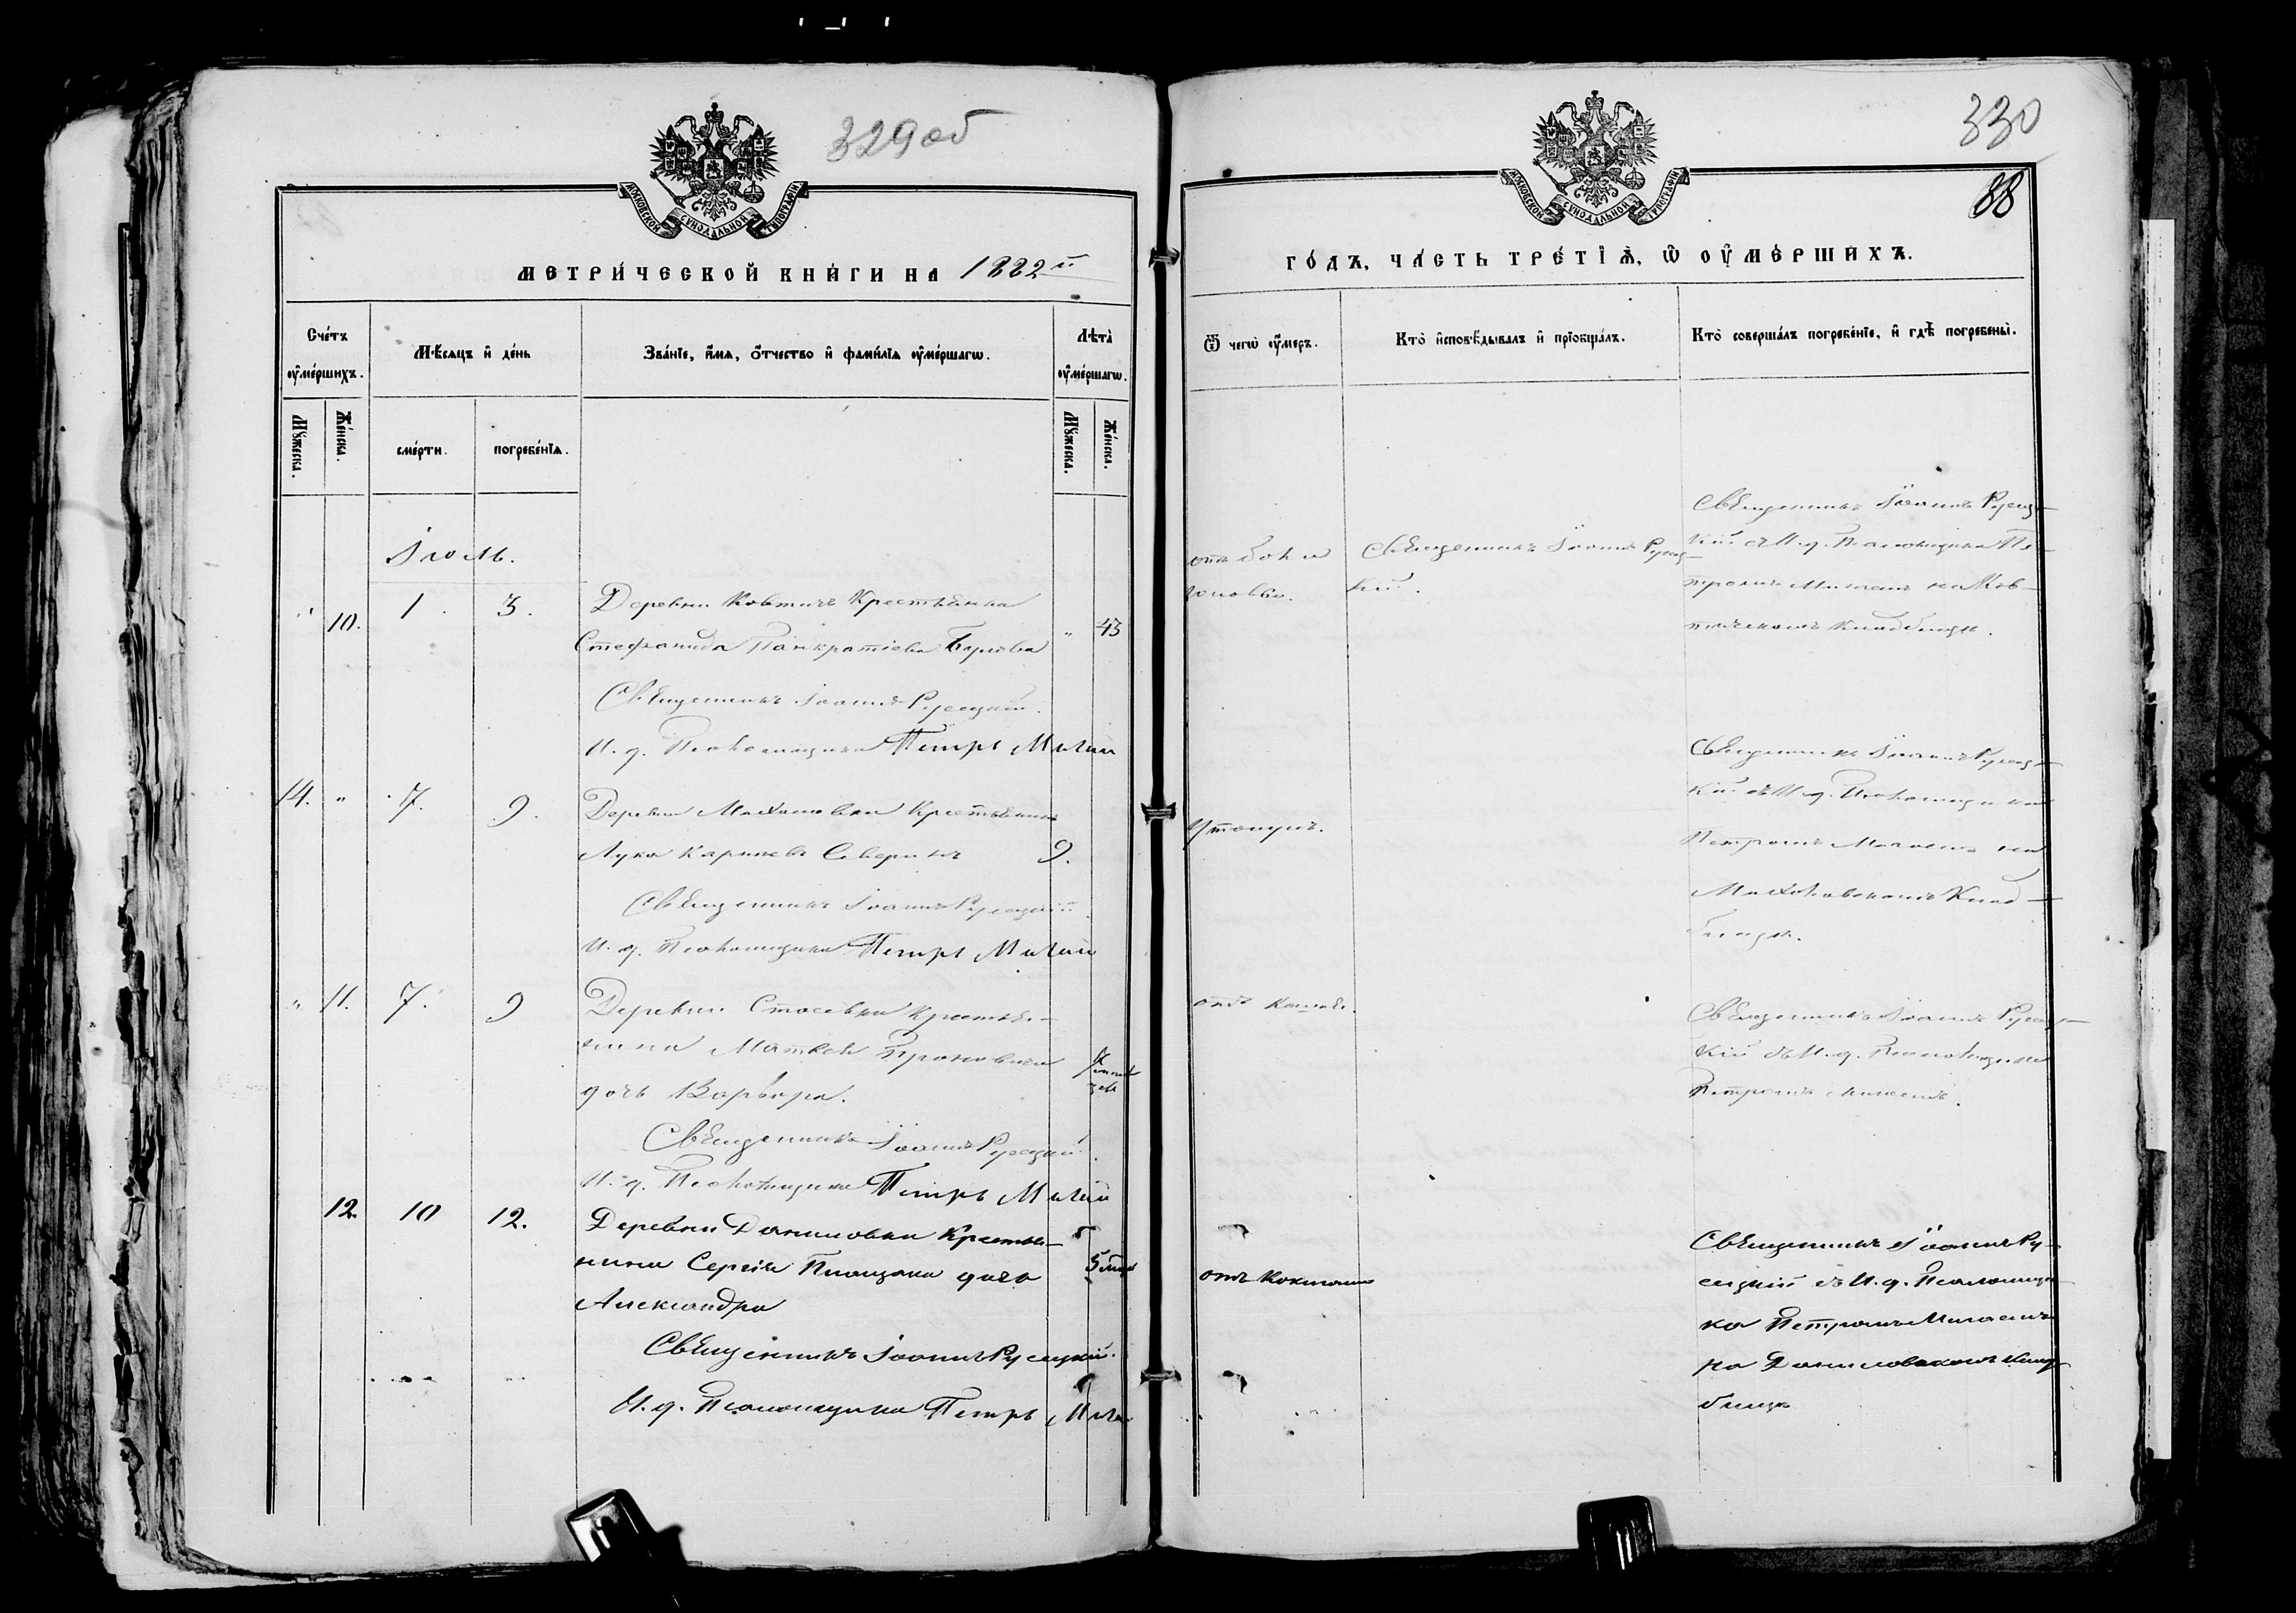 329об
МОСКОВСКОЙ СѴНОДАЛЬНОЙ ТИПОГРАФІИ
МЕТРИ́ЧЕСКОЙ КНИ́ГИ НА 1882й
Сче́тъ ᲂу҆ме́ршихъ.
Мѣ́сяцъ и҆ де́нь
Зва́нїе, и҆́мѧ, ѻ҆́тчество и҆ фамѝлїѧ ᲂу҆ме́ршагѡ.
Лѣ́та ᲂу҆ме́ршагѡ.
Мꙋ́жеска.
Же́нска.
сме́рти.
погребе́нїѧ.
Мꙋ́жеска.
Же́нска.
Іюль.
" 10. 1. 3. Деревни Ковтичъ Крестьянка
Стефанида Панкратіева " 43
Священникъ Іоаннъ Русецкій.
И. д. Псаломщика Петръ Мигай
14. " 7. 9. Деревни Михановки Крестьянинъ
Лука Северинъ 9.
Священникъ Іоаннъ Русецкій
И. д. Псаломщика Петръ Мигай
" 11. 7. 9 Деревни Стасевки Крестья-
нина Матвея
дочь Варвара.
Священникъ Іоаннъ Русецкій.
И. д. Псаломщика Петръ Мигай
12. 10 12. Деревни Даниловки Крестья-
нина Сергія дочь
Александра
5
Священникъ Іоаннъ Русецкій.
И. д. Псаломщика Петръ Мигай
330
88
МОСКОВСКОЙ СѴНОДАЛЬНОЙ ТИПОГРАФІИ
ГО́ДЪ, ЧА́СТЬ ТРЕ́ТЇѦ, Ѡ҆ ОУ҆МЕ́РШИХЪ.
Ѿ чегѡ̀ ᲂу҆́меръ.
Кто̀ и҆сповѣ́дывалъ и҆ прїѡбща́лъ.
Кто̀ соверша́лъ погребе́нїе, и҆ гдѣ̀ погребены̀.
отъ боли
головы.
Священникъ Іоаннъ Русец-
кій.
Священникъ Іоаннъ Русец-
кій съ И. д. Псаломщика Пе-
тромъ Мигаемъ на Ков-
тичскомъ Кладбищѣ.
Утонулъ.
Священникъ Іоаннъ Русец-
кій съ И. д. Псаломщика
Петромъ Мигаемъ на
Михановскомъ Клад-
бищѣ.
отъ Кашля.
Священникъ Іоаннъ Русец-
кій съ И. д. Псаломщика
Петромъ Мигаемъ.
отъ Коклюша
Священникъ Іоаннъ Ру-
сецкій съ И. д. Псаломщи-
ка Петромъ Мигаемъ
на Даниловскомъ Клад-
бищѣ